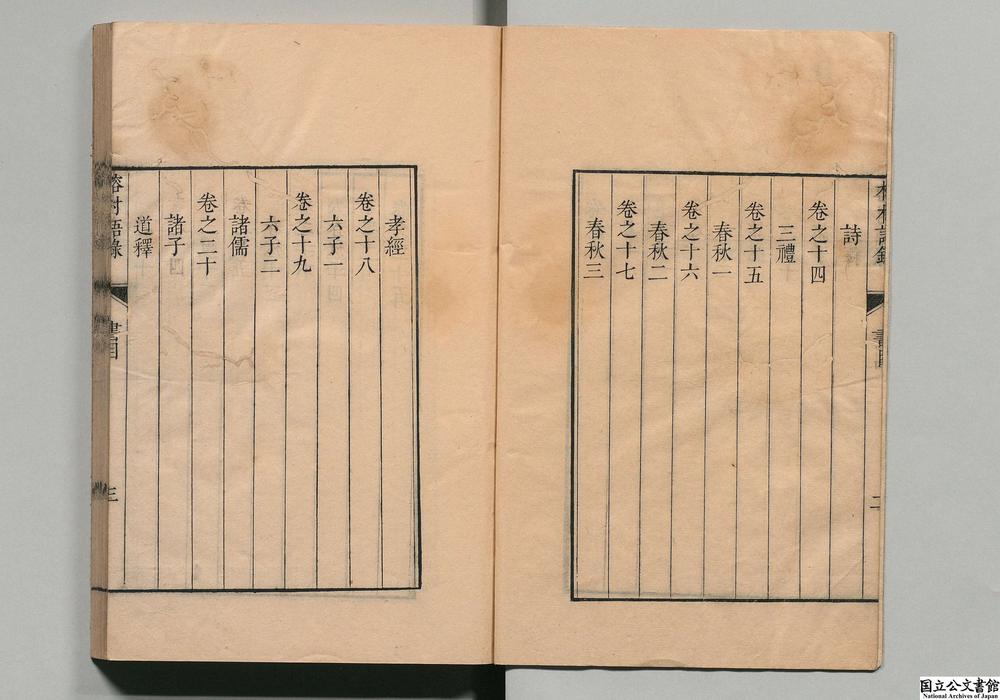 榕村語錄
書目
二
詩
卷之十四
三禮
卷之十五
春秋一
卷之十六
春秋二
卷之十七
春秋三
孝經
卷之十八
六子一
卷之十九
六子二
諸儒
卷之二十
諸子
道釋
榕村語錄
書目
三
国立公文書館
National Archives of Japan